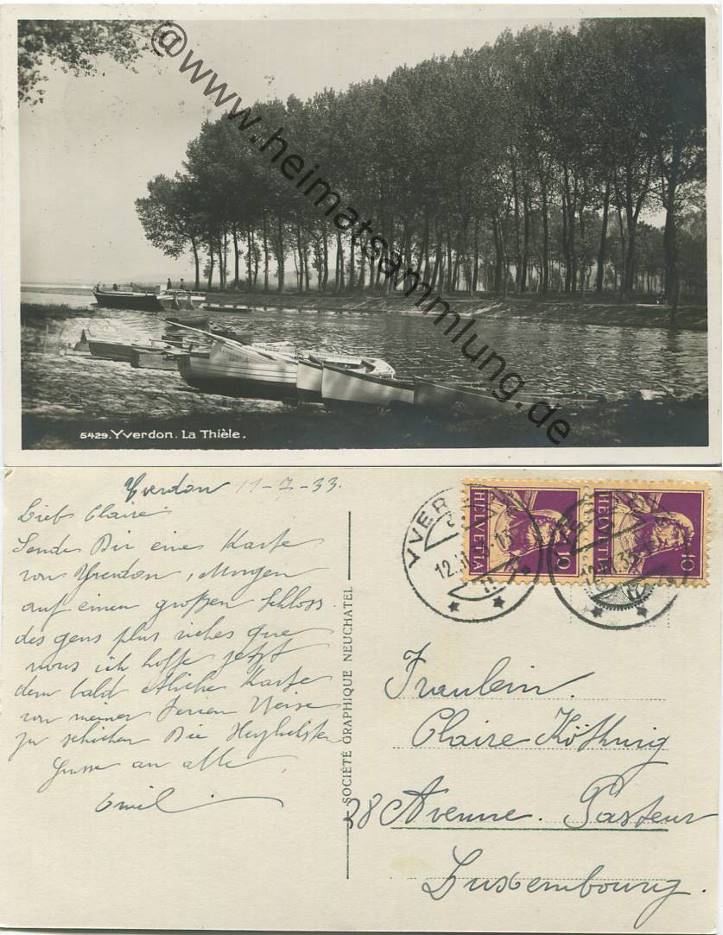 @www.heimatsammlung.de
5429. Yverdon. La Thièle.
Yverdon 11-7-33.
Lieb Claire
Sende Dir eine Karte
von Yverdon, Morgen
auf einen großen Schloss.
des gens plus riches que
nous ich hoffe jetzt
dem bald etliche Karte
von meiner Ferien Reise
zu schicken Die
Gruss an alle
Emil
SOCIÉTÉ GRAPHIQUE NEUCHATEL
HELVETIA 10
HELVETIA 10
YVER
12.
Fraulein.
Claire
28 Avenue. Pasteur
Luxembourg.